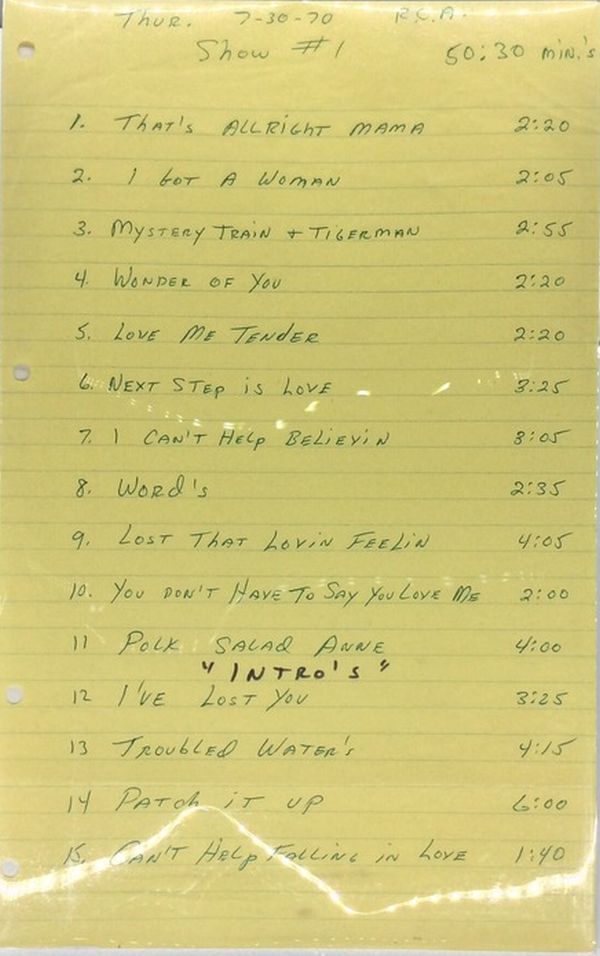 Thur. 7-30-70 R.C.A.
Show #1 50:30 min.'s
1. That's Allright Mama 2:20
2. I Got A Woman 2:05
3. Mystery Train + Tigerman 2:55
4. Wonder of You 2:20
5. Love Me Tender 2:20
6. Next Step is Love 3:25
7. I Can't Help Believin 3:05
8. Word's 2:35
9. Lost That Lovin Feelin 4:05
10. You Don't Have To Say You Love Me 2:00
11 Polk Salad Anne 4:00
"INTRO'S"
12 I've Lost You 3:25
13 Troubled Water's 4:15
14 Patch it up 6:00
15. Can't Help Falling in Love 1:40